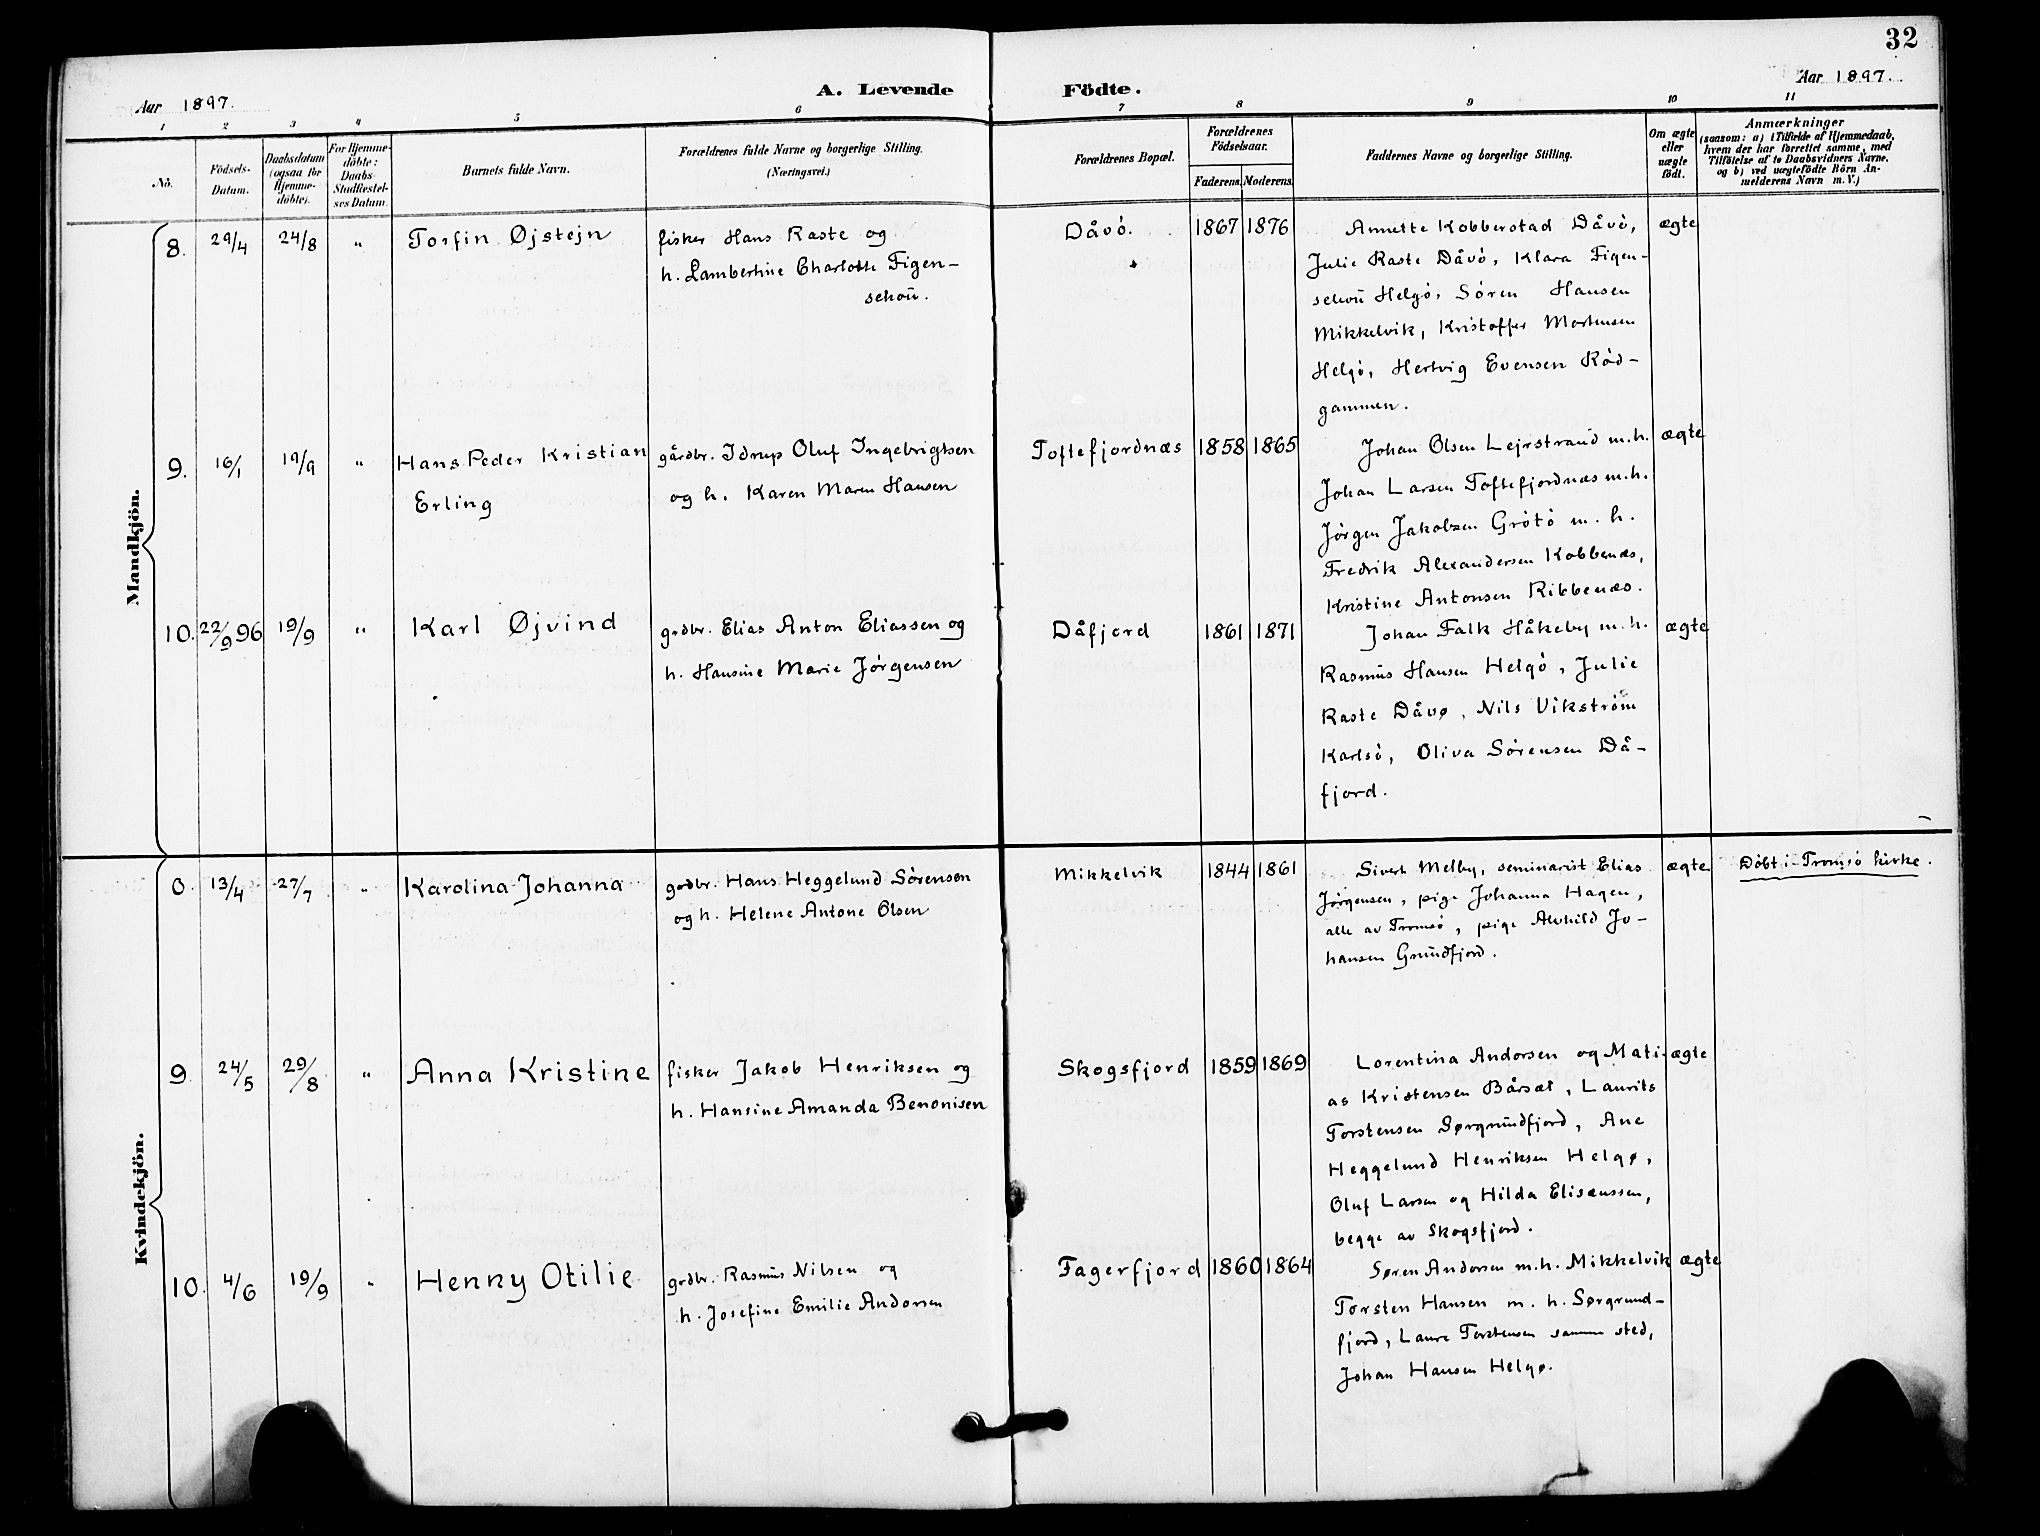 32
Aar 1897.
A. Levende Födte.
Aar 1897.
1 2 3 4 5 6 7 8 9 10 11
No.
Födsels-Datum.
Daabsdatum (ogsaa for Hjemme-döbte).
For Hjemme-döbte: Daabs-Stadfæstel-ses Datum.
Barnets fulde Navn.
Forældrenes fulde Navne og borgerlige Stilling.
(Næringsvei.)
Forældrenes Bopæl.
Forældrenes Födselsaar.
Faderens. Moderens.
Faddernes Navne og borgerlige Stilling.
Om ægte eller uægte födt.
Anmærkninger
(saasom: a) i Tilfælde af Hjemmedaab,
hvem der har forrettet samme, med
Tilföielse af to Daabsvidners Navne.
og b) ved uægtefödte Börn An-
melderens Navn m. V.)
Mandkjön.
8. 29/4 24/8 " Torfin Øjstejn
fisker Hans Raste og
h. Lambertine Charlotte Figen-
schou.
Dåvö. 1867 1876
Annette Kobberstad Dåvö,
Julie Raste Dåvö, Klara Figen-
schou Helgö, Sören Hansen
Mikkelvik, Kristoffer Mortensen
Helgö, Hertvig Evensen Röd-
gammen.
ægte
9. 16/1 19/9 " Hans Peder Kristian
Erling
gårdbr. Idrup Oluf Ingebrigtsen
og h. Karen Maren Hansen
Toftefjordnæs 1858 1865
Johan Olsen Lejrstrand m.h.
Johan Larsen Toftefjordnæs m.h.
Jörgen Jakobsen Grötö m. h.
Fredrik Alexandersen Kobbenæs,
Kristine Antonsen Ribbenæs.
ægte
10. 22/9 96 19/9 " Karl Øjvind
grdbr. Elias Anton Eliassen og
h. Hansine Marie Jörgensen
Dåfjord 1861 1871
Johan Falk Håkeby m.h.
Rasmus Hansen Helgö, Julie
Raste Dåvø, Nils Vikström
Karlsö, Oliva Sörensen Då-
fjord.
ægte
Kvindekjön.
8. 13/4 27/7 " Karolina Johanna
grdbr. Hans Heggelund Sörensen
og h. Helene Antone Olsen
Mikkelvik 1844 1861
Sivert Melby, seminarist Elias
Jörgensen, pige Johanna Hagen,
alle av Tromsö, pige Alvhild Jo-
hansen Grundfjord.
ægte
Döbt i Tromsö kirke.
9. 24/5 29/8 " Anna Kristine
fisker Jakob Henriksen og
h. Hansine Amanda Benonisen
Skogsfjord 1859 1869
Lorentina Andorsen og Mati-
as Kristensen Bårsæt, Laurits
Torstensen Sørgrundfjord, Ane
Heggelund Henriksen Helgø,
Oluf Larsen og Hilda Elisæussen,
begge av Skogsfjord.
ægte
10. 4/6 19/9 " Henny Otilie
grdbr. Rasmus Nilsen og
h. Josefine Emilie Andorsen
Fagerfjord 1860 1864
Søren Andorsen m.h. Mikkelvik
Torsten Hansen m. h. Sørgrund-
fjord, Laura Torstensen samme sted,
Johan Hansen Helgø.
ægte